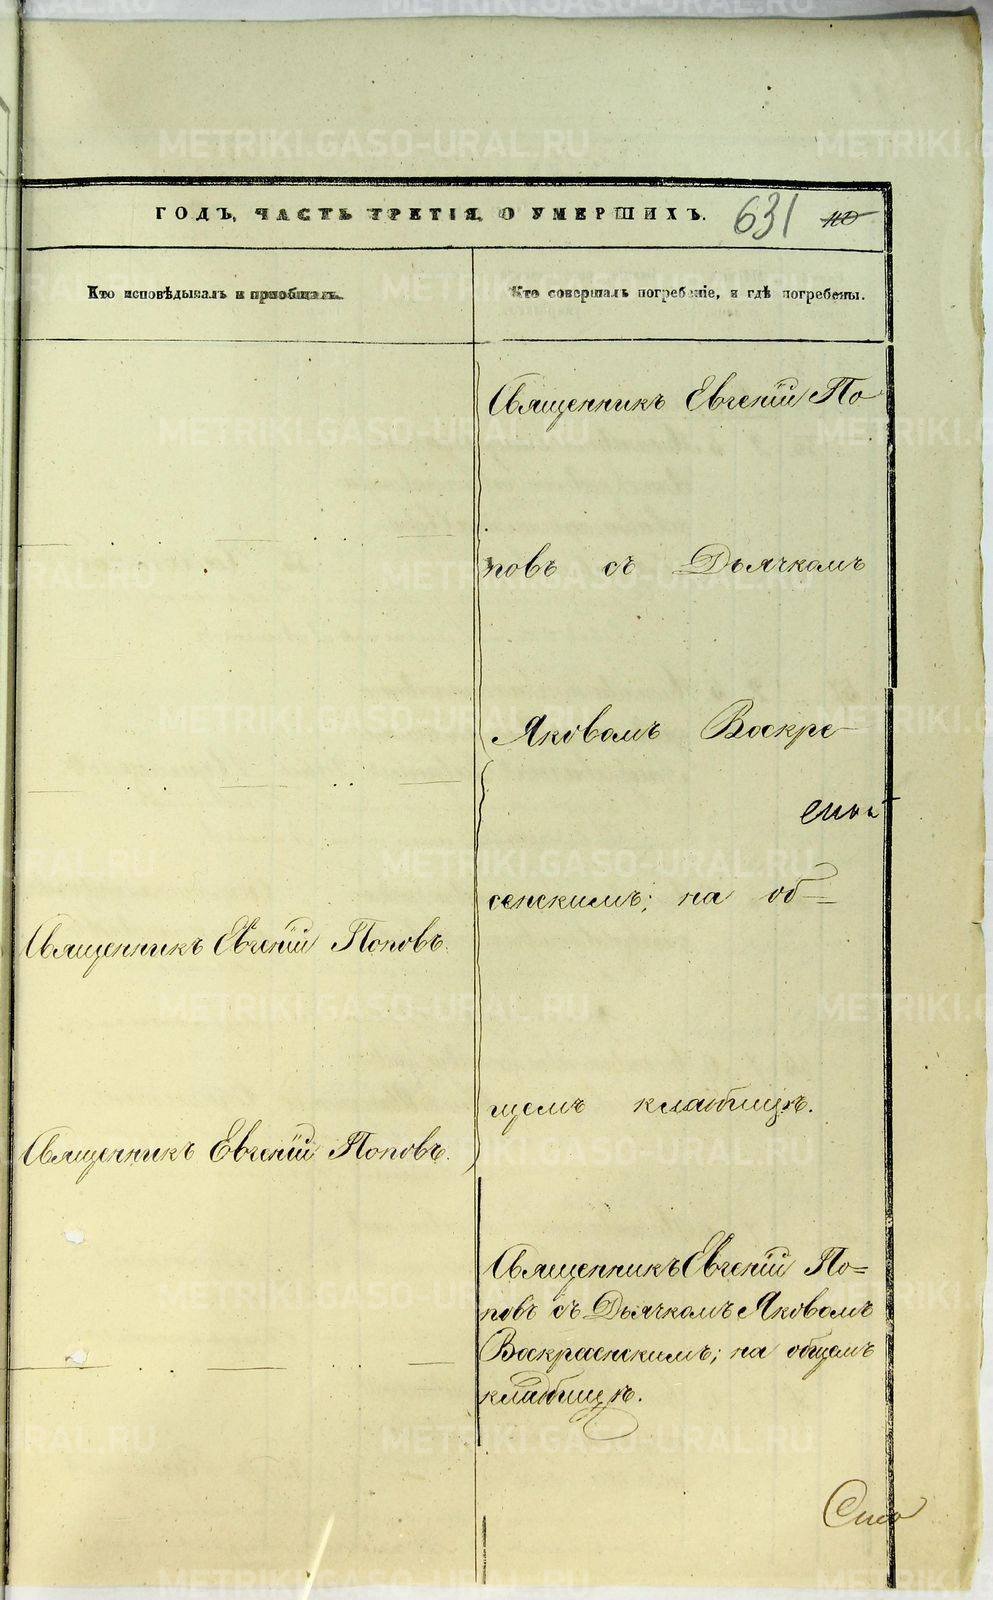 ГОДЪ, ЧАСТЬ ТРЕТІЯ, О УМЕРШИХЪ. 631
Кто исповѣдывалъ и пріобщалъ.
Кто совершалъ погребеніе, и гдѣ погребены.
Священникъ Евгеній По
повъ съ Дьячкомъ
Яковомъ Воскре-
сенскимъ; на об=
щемъ кладбищѣ.
Священникъ Евгеній Поповъ.
Священникъ Евгеній Поповъ.
Священникъ Евгеній По=
повъ съ Дьячкомъ Яковомъ
Воскрсенскимъ; на общемъ
кладбищѣ.
METRIKI.GASO-URAL.RU